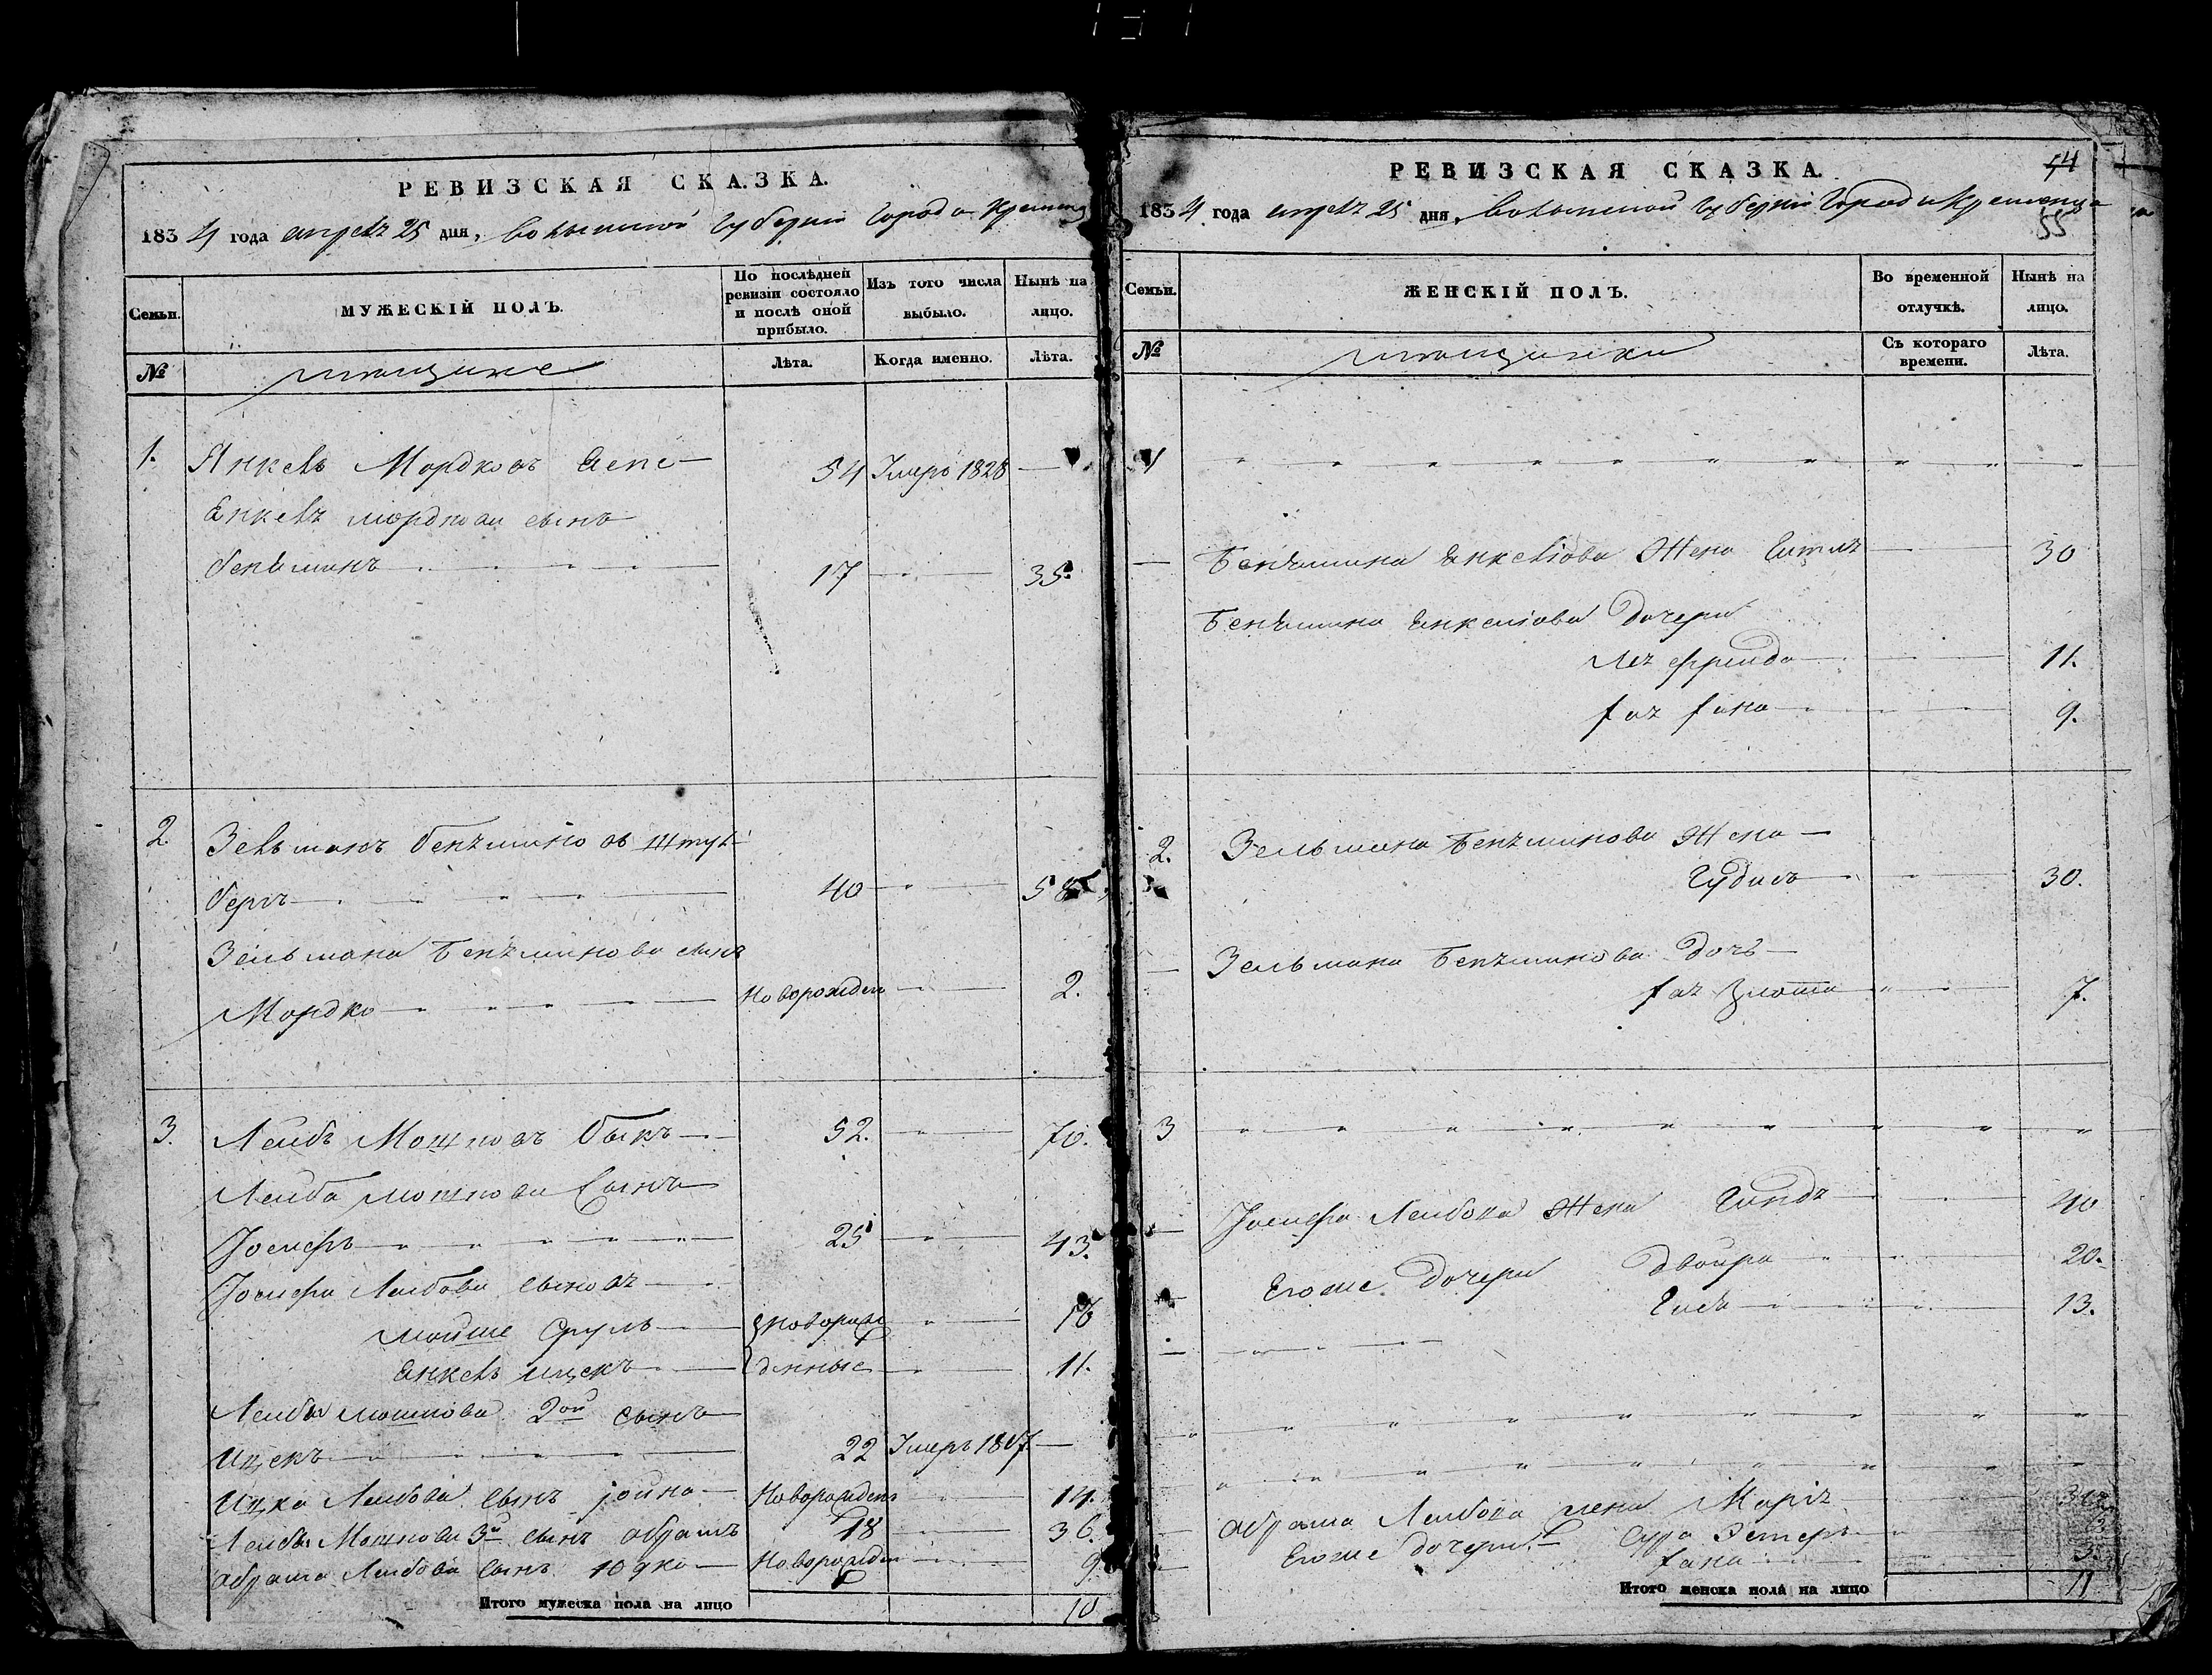 РЕВИЗСКАЯ СКАЗКА.
183 4 года апреля 25 дня, Волынской Губернии Города Кременца
Семьи.
МУЖЕСКІЙ ПОЛЪ.
По послѣдней ревизіи состояло и послѣ оной прибыло.
Изъ того числа выбыло.
Нынѣ на лицо.
№
мещане
Лѣта.
Когда именно.
Лѣта.
1. Янкель Мордковъ 54 Умеръ 1828 —
Енкеля мордкова сынъ
бениминъ 17 — 35.
2. Зельманъ бениминовъ Штуль-
бергъ 40 — 58
Зельмана Бениминова сынъ
Мордко Новорожден 2.
3. Лейбъ Мошковъ Быкъ 52. 70.
Лейба мошкова Сынъ
Іосифъ 25 43.
Іосифа Лейбова сыновя
мойше Сруль новорож 16
Енкель ицекъ денные 11.
Лейбы мошкова 2ой сынъ
Ицекъ 22 Умеръ 1817 —
Ицка Лейбова сынъ іойна Новорожденъ 14.
Лейбы Мошкова 3й сынъ абрамъ 18 36.
абрама Лейбова сынъ юдко Новорожден 9
Итого мужеска пола на лицо 10
РЕВИЗСКАЯ СКАЗКА.
54
183 4 года апреля 25 дня, Волынской Губерніи Города Кременца
55
Семьи.
ЖЕНСКІЙ ПОЛЪ.
Во временной отлучкѣ.
Нынѣ на лицо.
№
мещанки
Съ котораго времени.
Лѣта.
1
Бенимина Енкелiова Жена 30
Бенимина Енкелiова Дочери
11.
9.
2. Зельмана Бениминова Жена
Гудись 30.
Зельмана Бениминова Дочь
Злота 7.
3
Іосифа Лейбова Жена Гинда 40
Егоже Дочери Двойра 20.
13.
абрама Лейбова жена Марія
Егоже дочери Сура Эстеръ
Хана 3.
Итого женска пола на лицо 11